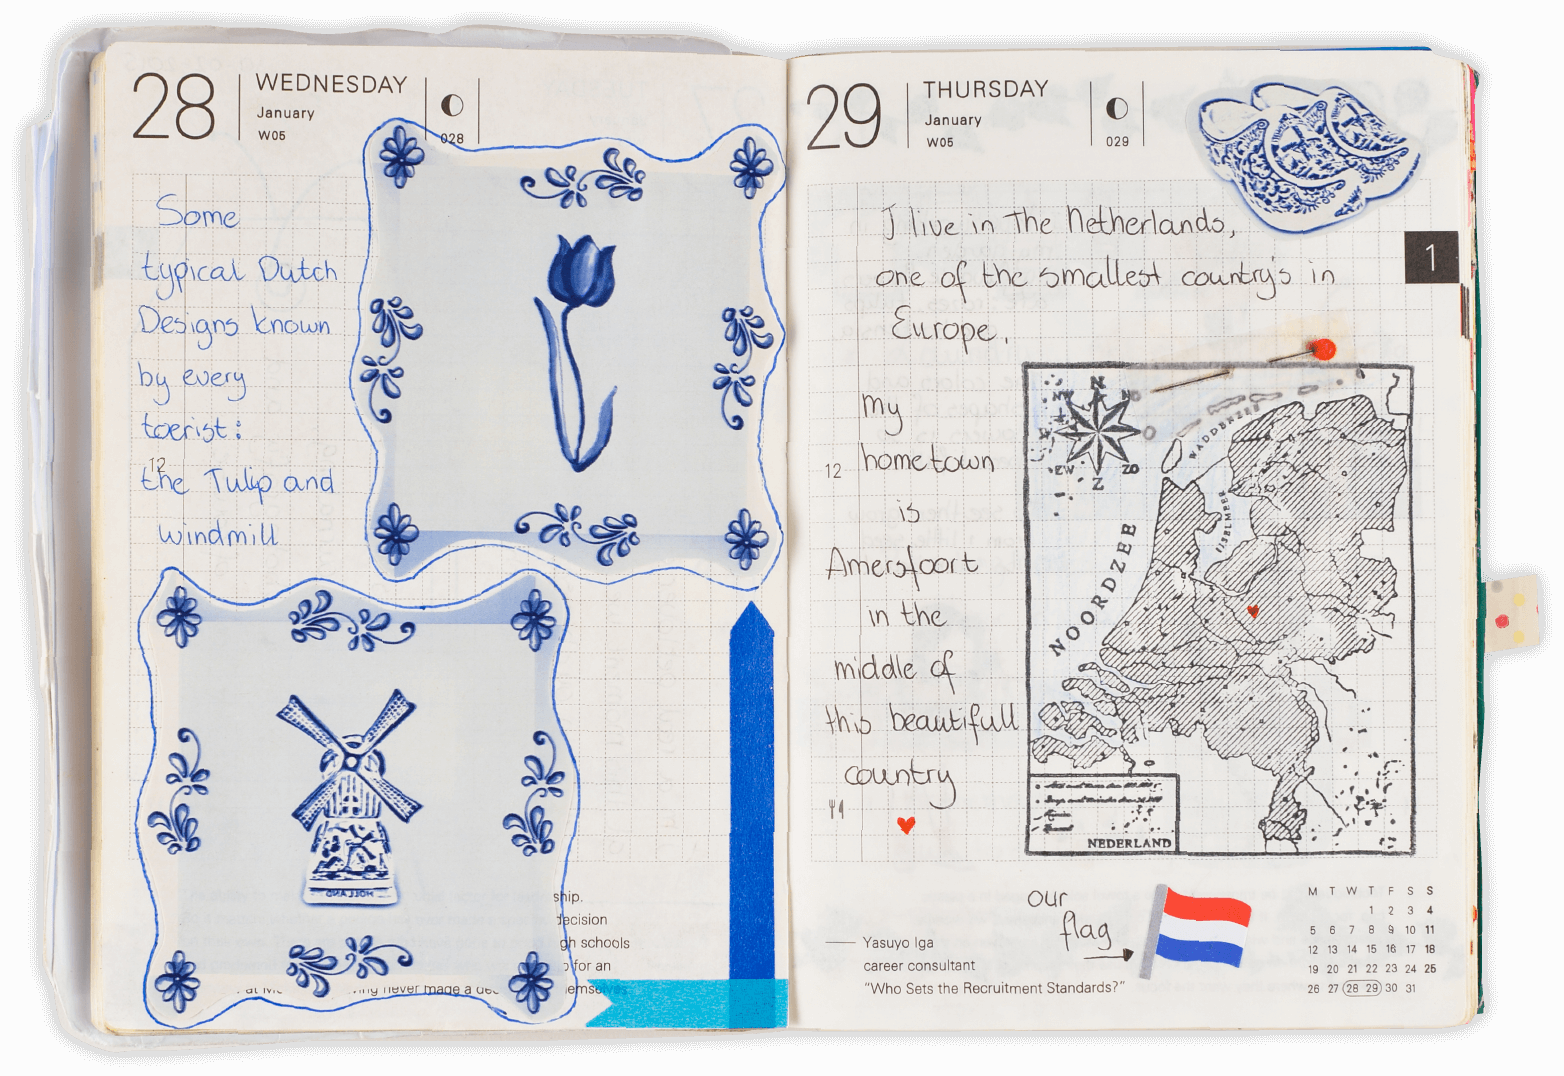 28
WEDNESDAY
January
W05
028
Some
typical Dutch
Designs known
by every
toerist:
12
the Tulip and
windmill
HOLLAND
ship.
decision
gh schools
for an
never made a dec
emselves
29
THURSDAY
January
W05
029
1
I live in The Netherlands,
one of the smallest country's in
Europe.
my
12
hometown
is
Amersfoort
in the
middle of
this beautifull
country
N
NW
NO
ZO
Z
WADDENZEE
IJSELMEER
NOORDZEE
NEDERLAND
our
flag
Yasuyo Iga
career consultant
"Who Sets the Recruitment Standards?"
M T W T F S S
1 2 3 4
5 6 7 8 9 10 11
12 13 14 15 16 17 18
19 20 21 22 23 24 25
26 27 28 29 30 31